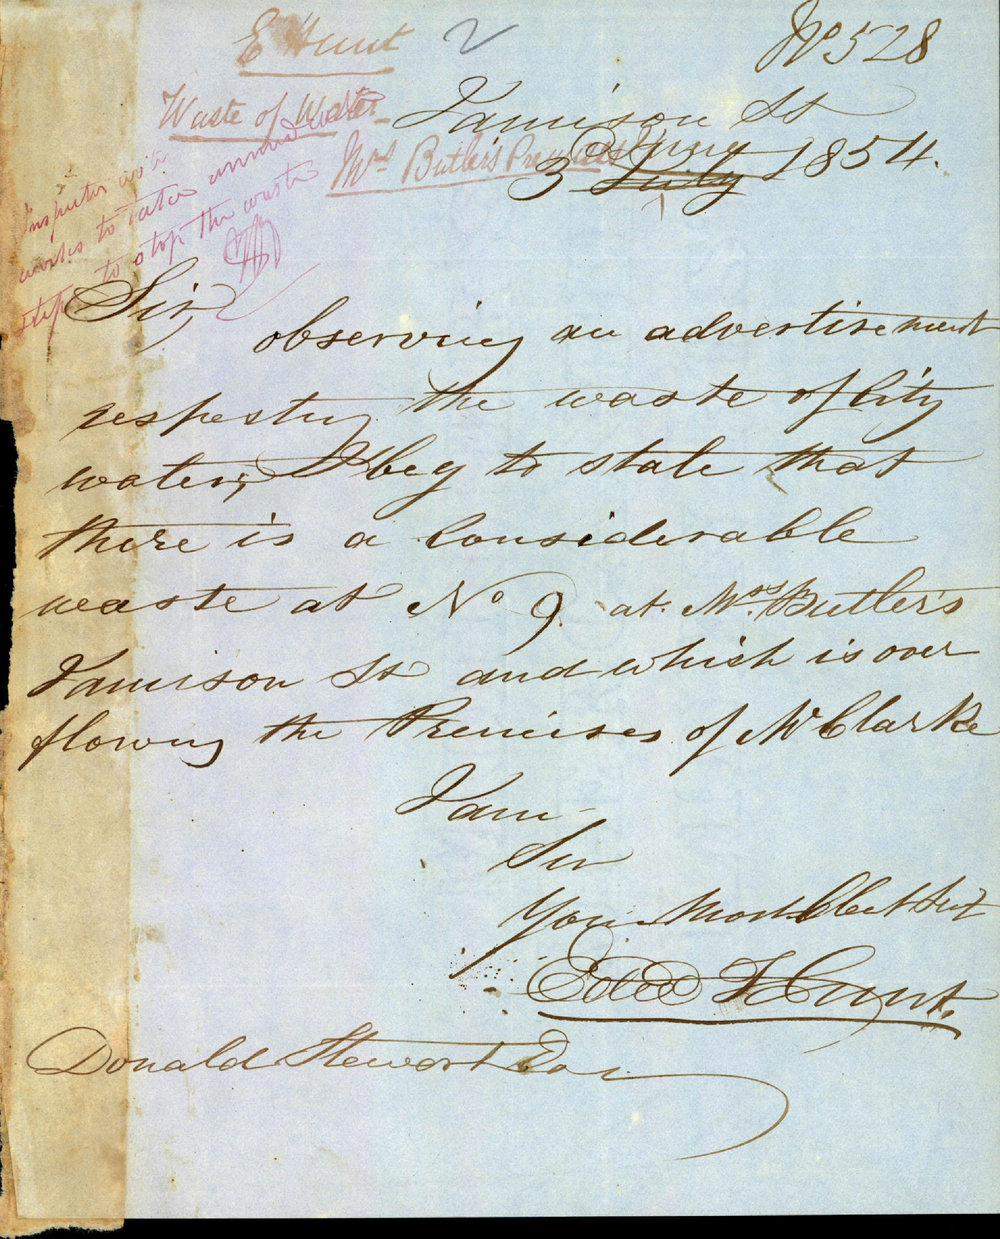 E Hunt
No 528
Waste of Water
Mrs Butler's Premises
Inspector of
works to take immediate
steps to stop the waste
Jamison St
3 July Aug 1854.
Sir,
observing an advertisement
respecting the waste of City
water, I beg to state that
there is a Considerable
waste at No 9. at Mrs Butler's
Jamison St and which is over
flowing the Premises of Mr Clarke
I am
Sir
Your Most Obet Servt
Edwd Hunt.
Donald Stewart Esq